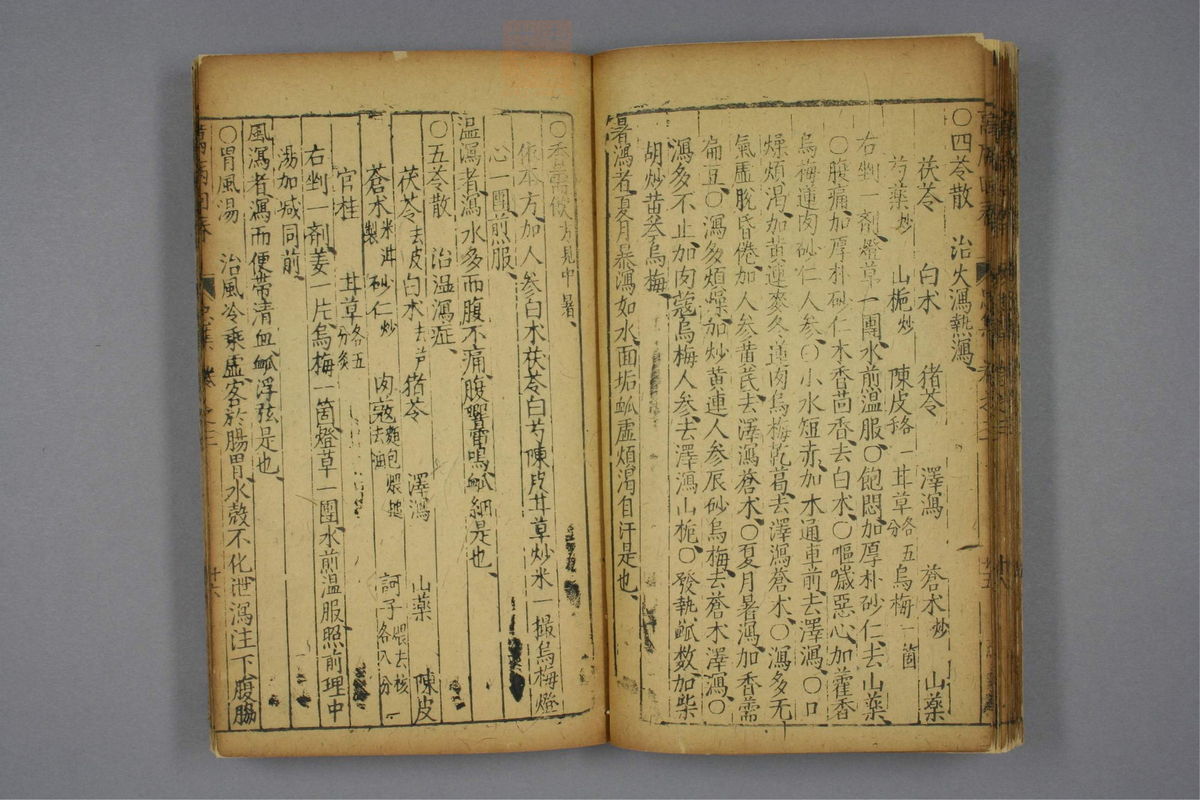 ○四苓散 治火瀉熱瀉
茯苓 白朮 猪苓 澤瀉 蒼朮炒 山藥
芍藥炒 山梔炒 陳皮各一 甘草各五分 烏梅一箇
右剉一剤燈草一團水煎温服○飽悶加厚朴砂仁去山藥
○腹痛加厚朴砂仁木香茴香去白朮○嘔噦惡心加藿香
烏梅蓮肉砂仁人參○小水短赤加木通車前去澤瀉○口
燥煩渴加黃連麥冬蓮肉烏梅乾葛去澤瀉蒼朮○瀉多元
氣虛脫昏倦加人參黃芪去澤瀉蒼朮○夏月暑瀉加香薷
扁豆○瀉多煩燥加炒黃連人參辰砂烏梅去蒼朮澤瀉○
瀉多不止加肉蔻烏梅人參去澤瀉山梔○發熱脉数加柴
胡炒黃參烏梅
暑瀉者夏月暴瀉如水面垢脉虛煩渴自汗是也
○香薷散方見中暑
依本方加人參白朮茯苓白芍陳皮甘草炒米一撮烏梅燈
心一團煎服
温瀉者瀉水多而腹不痛腹響雷鳴脉細是也
○五苓散 治湿瀉症
茯苓去皮 白朮去芦 猪苓 澤瀉 山藥 陳皮
蒼朮米泔製 砂仁炒 肉蔻麵包煨搥去油 訶子煨去核各八分
官桂 甘草各五分炙
右剉一剤姜一片烏梅一箇燈草一團水煎温服照前理中
湯加减同前
風瀉者瀉而便帶清血脉浮弦是也
○胃風湯 治風冷乘虛客於腸胃水穀不化泄瀉注下腹脇